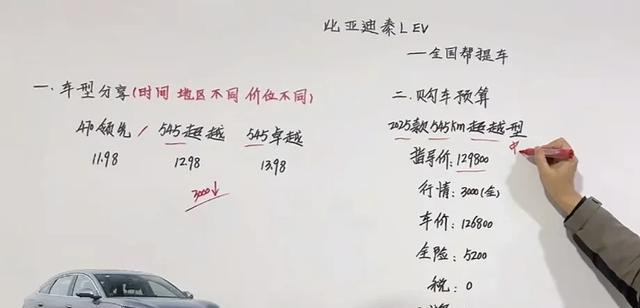 比亚迪秦L EV
—全国帮提车
一.车型分享(时间 地区不同 价位不同)
470领先/545超越 545卓越
11.98 12.98 13.98
3000↓
二.购车预算
2025款545km超越型
指导价:129800
行情:3000(全)
车价:126800
全险:5200
税:0